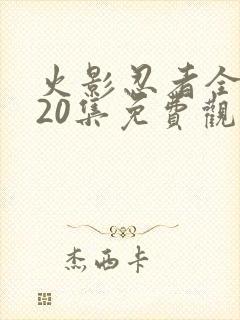 火影忍者全
20集免費觀
杰西卡